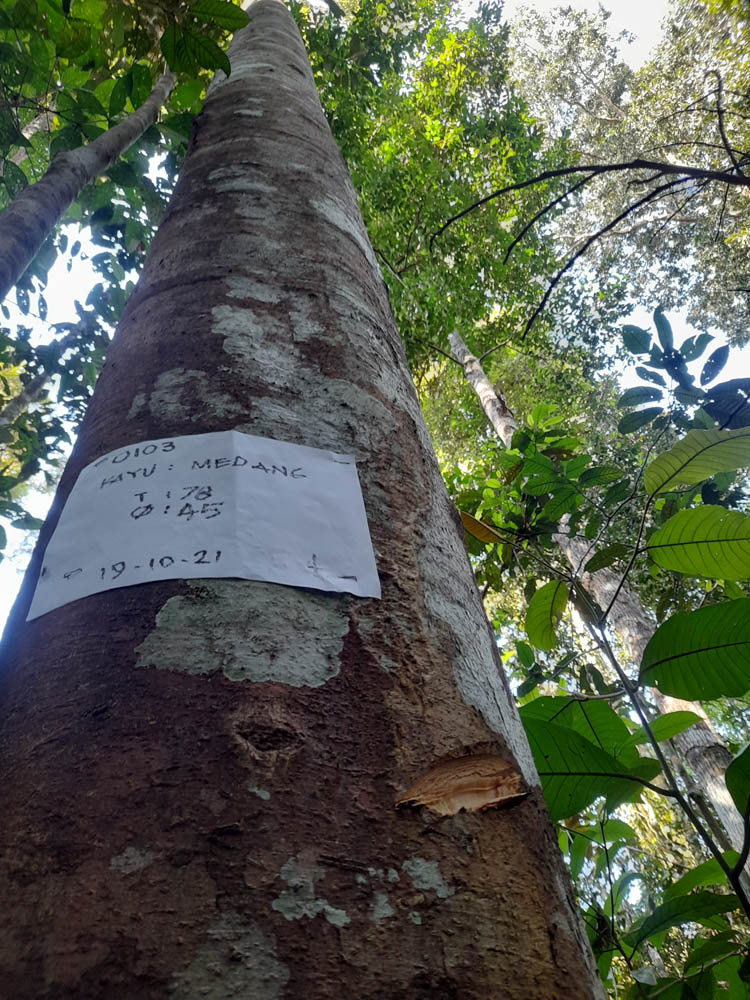 00103
KAYU : MEDANG
T : 78
Ø : 45
19-10-21